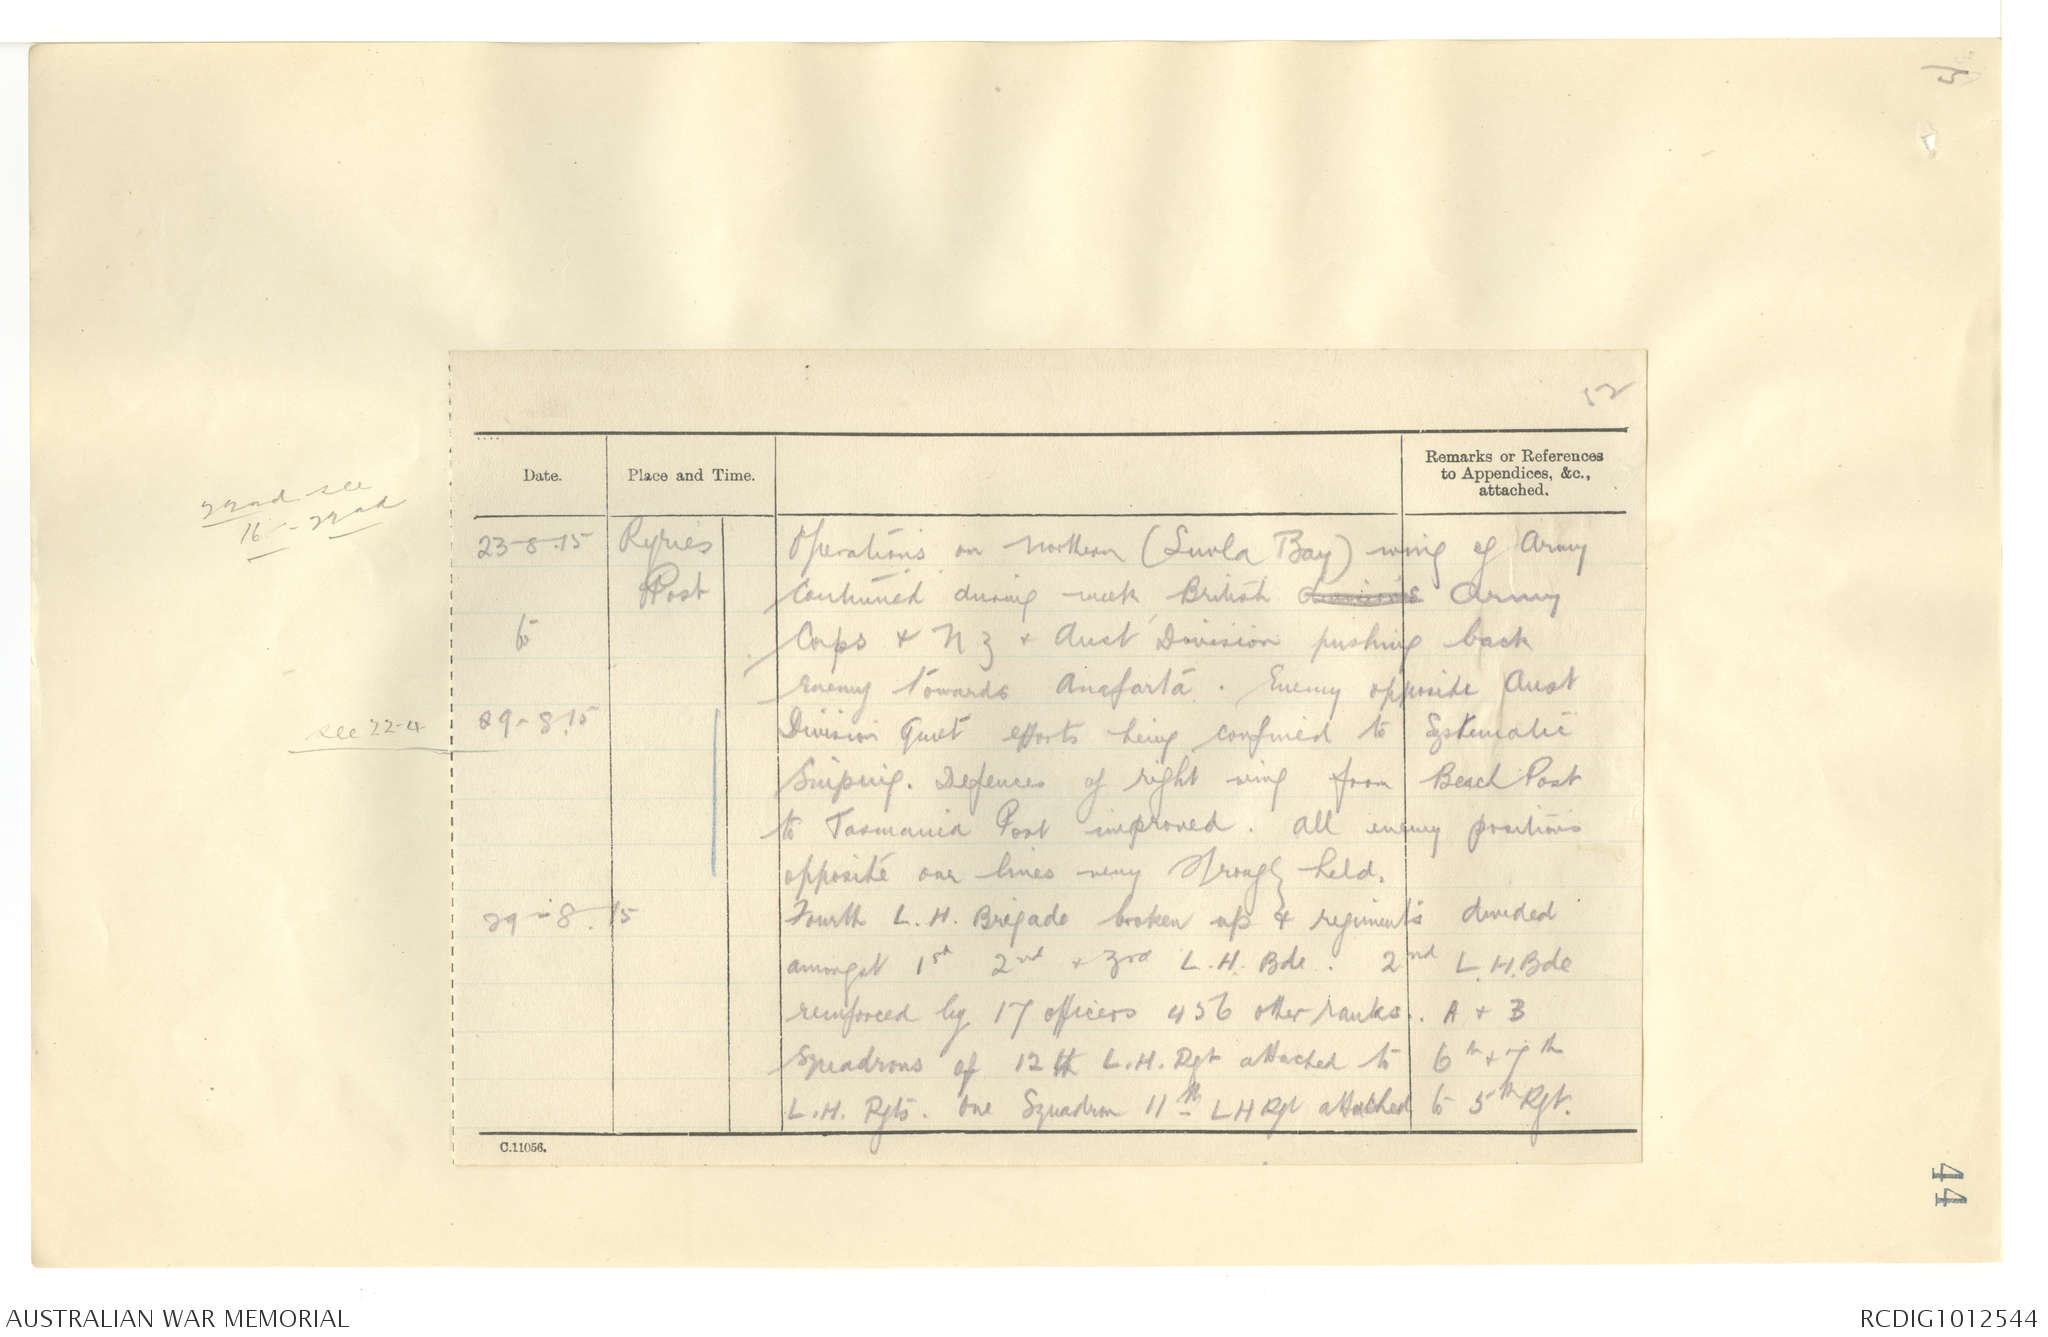 52
Date.
Place and Time.
Remarks or References
to Appendices, &c.,
attached.
22nd see
16 - 22nd
23-8-15 Ryries Operations on northern (Suvla Bay) wing of Army
Post Continued during week British Army
to Corps & N Z & Aust Division pushing back
enemy towards Anafarta. Enemy opposite Aust
see 22-4
29-8.15 Division Quiet efforts being confined to Systematic
Sniping. Defences of right wing from Beach Post
to Tasmania Post improved. All enemy positions
opposite our lines very strongly held.
29-8.15 Fourth L.H. Brigade broken up & regiments divided
amongst 1st 2nd & 3rd L.H. Bde. 2nd L.H. Bde
reinforced by 17 officers 456 other ranks. A & B
Squadrons of 12th L.H. Rgt attached to 6th & 7th
L.H. Rgts. One Squadron 11th L H Rgt attached to 5th Rgt.
C.11056.
44
AUSTRALIAN WAR MEMORIAL
RCDIG1012544